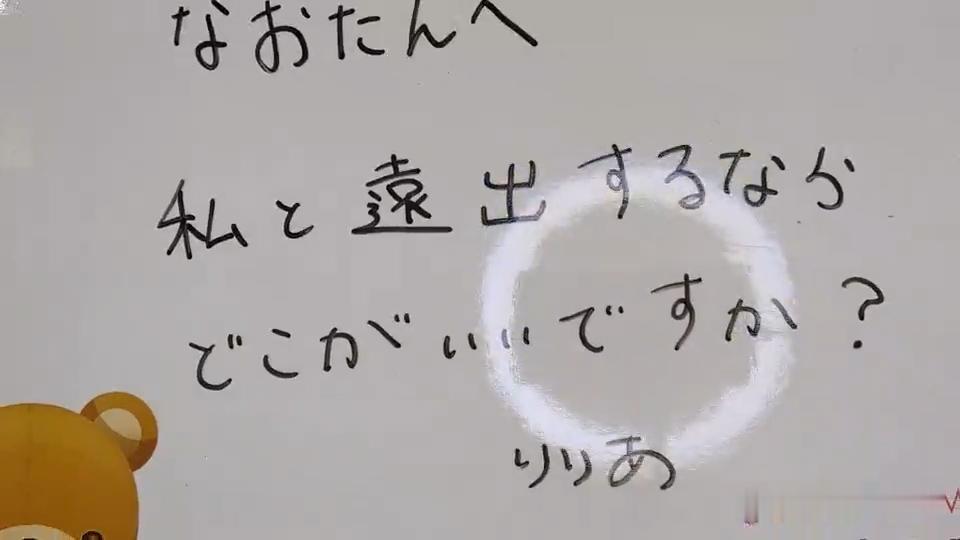 なおたんへ
私と遠出するなら
どこがいいですか?
りりあ